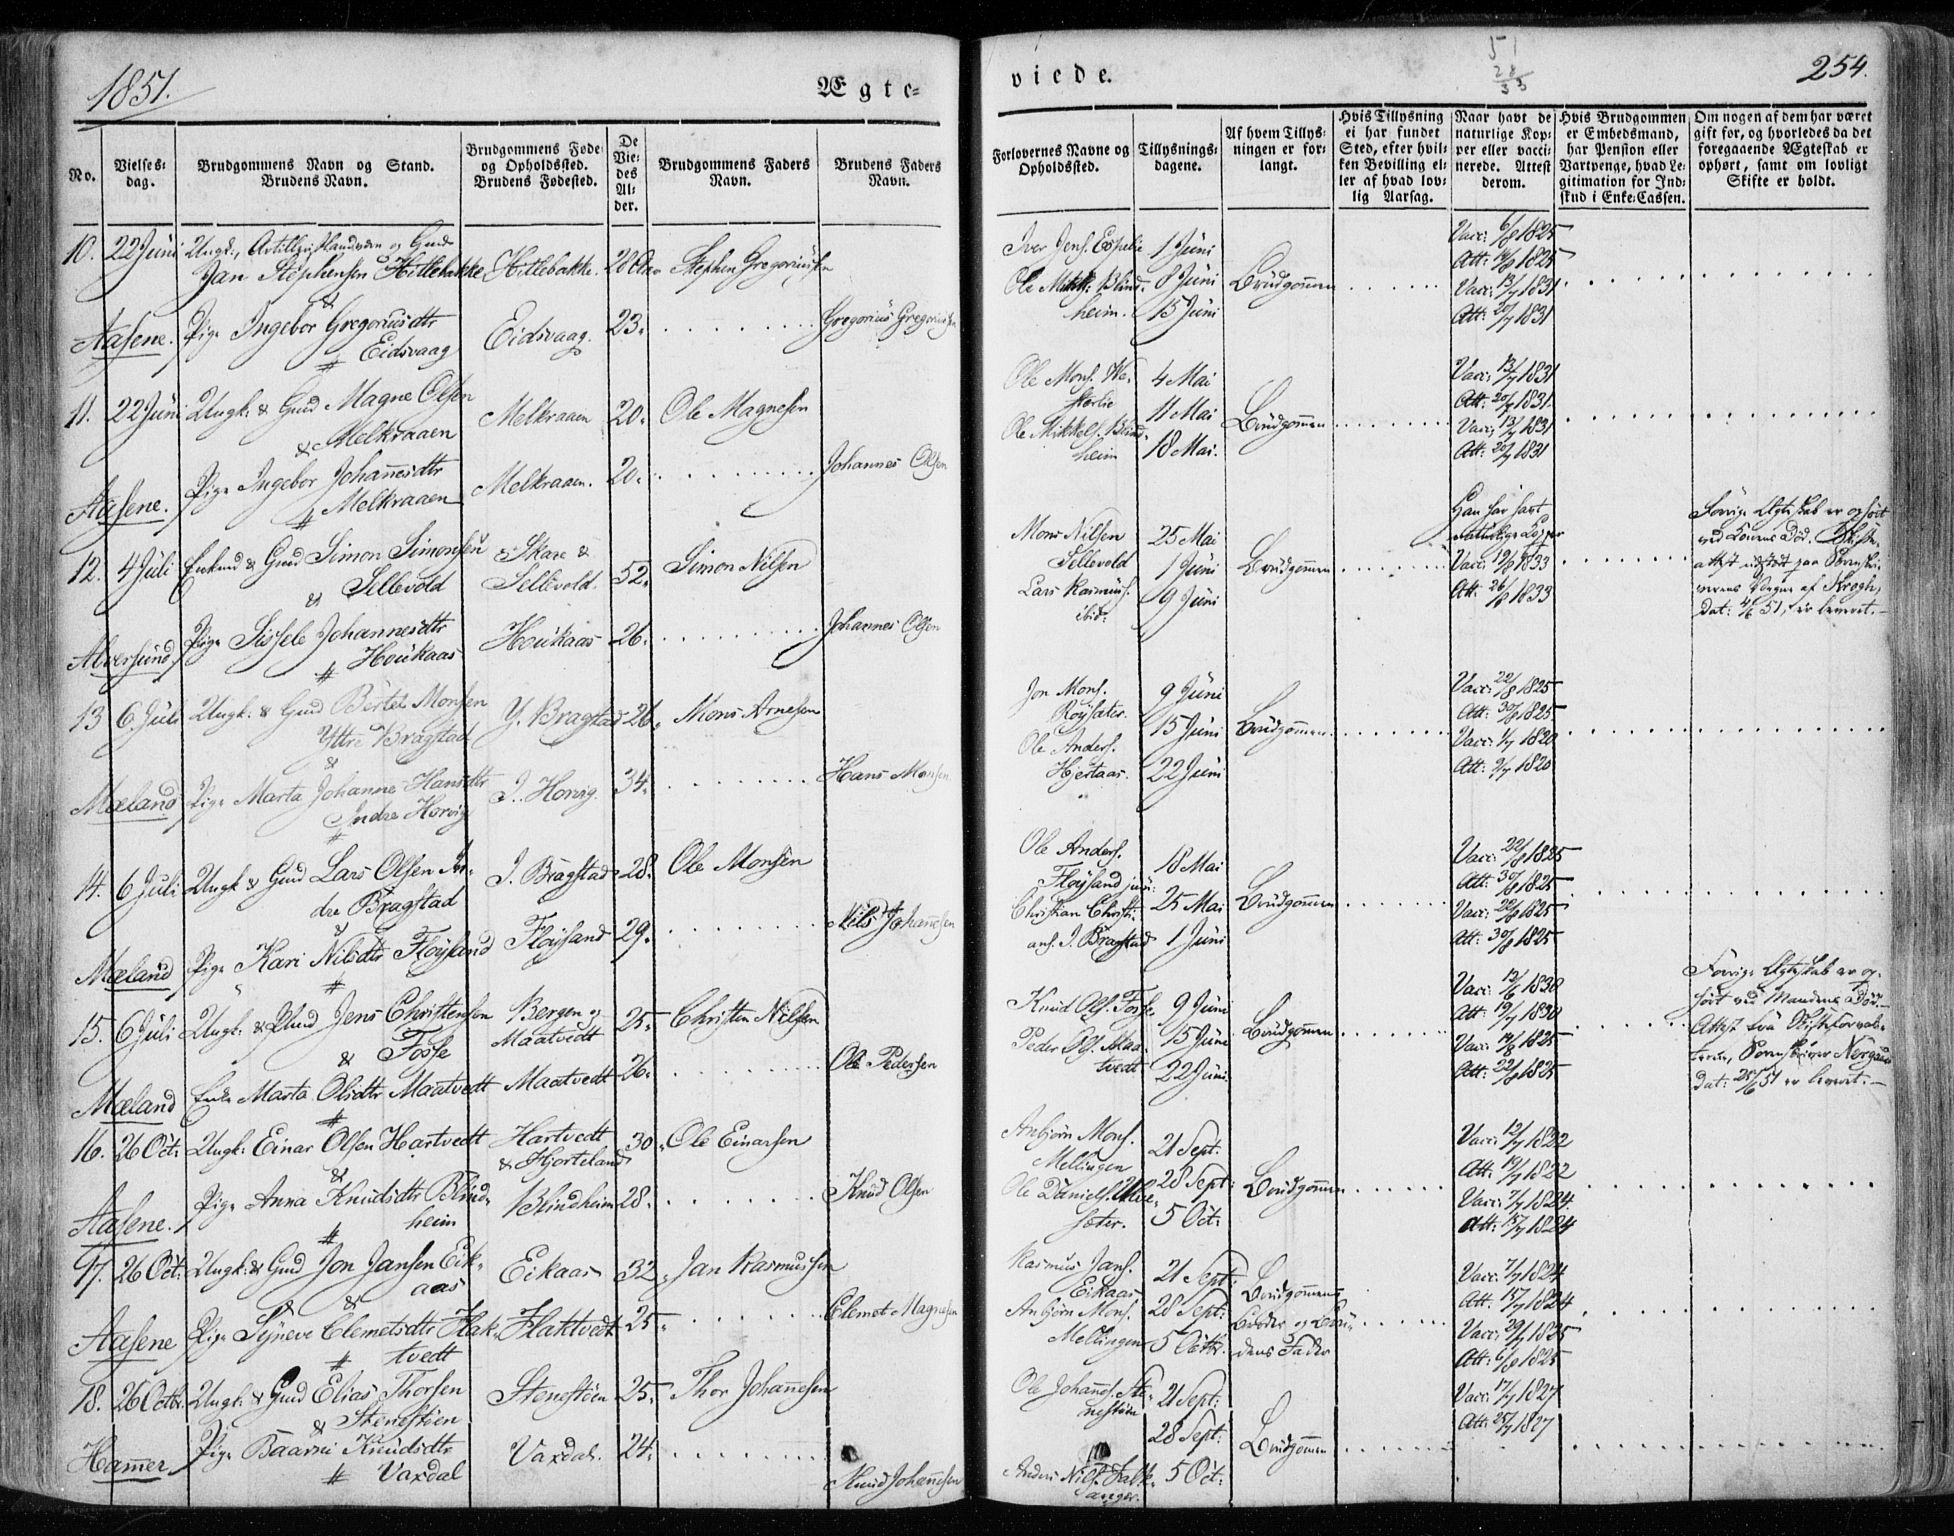 1851.
Ægte-
No.
Vielses-
dag.
Brudgommens Navn og Stand.
Brudens Navn.
Brudgommens Føde
og Opholdssted.
Brudens Fødested.
De
Vie-
des
Al-
der.
Brudgommens Faders
Navn.
Brudens Faders
Navn.
10. 22 Juni Ungk:, Artillerihandværn og Gmd
Jan Stephensen Hillebakke Hillebakke. 20 Stephen Gregoriussen
&
Aasene. Pige Ingebor Gregoriusdtr Eidsvaag. 23. Gregorius Gregoriussen
# Eidsvaag
11. 22 Juni Ungk: & Gmd Magne Olsen Melkraaen 20. Ole Magnesen
& Melkraaen
Aasene. Pige Ingebor Johannesdtr Melkraaen. 20. Johannes Olsen
# Melkraaen
12. 4 Juli Enkmd & Gmd Simon Simonsen Skare & 52. Simon Nilsen
& Sellevold Sellevold.
Alversund Pige Sissele Johannesdtr Houkaas 26. Johannes Olsen
# Houkaas
13 6. Juli Ungk: & Gmd Bertel Monsen Y. Bragstad 26. Mons Arnesen
Yttre Bragstad
&
Mæland Pige Marta Johanne Hansdtr I. Horvig. 34. Hans Monsen
Indre Horvig
#
14. 6 Juli Ungk & Gmd Lars Olsen In- I. Bragstad 28. Ole Monsen
dre Bragstad
&
Mæland Pige Kari Nilsdtr Fløysand Fløysand 29. Nils Johannesen
#
15. 6 Juli Ungk: & Jens Christensen Bergen og 25. Christen Nilsen
& Fosse Maatvedt
Mæland Enke Marta Olsdtr Maatvedt Maatvedt 26. Ole Pedersen
#
16. 26 Oct: Ungk: Einar Olsen Hartvedt Hartvedt 30. Ole Einarsen
& & Hjorteland
Aasene. Pige Anna Knudsdtr Blind- Blindheim 28. Knud Olsen
# heim
17. 26 Oct: Ungk: & Gmd Jon Jansen Eik- Eikaas 32. Jan Rasmussen
aas
&
Aasene Pige Synneve Clemetsdtr Flak- Flaktvedt 25. Clemet Magnesen
# tvedt
18. 26 Octbr. Ungk: & Gmd Elias Thorsen Stenestøen 25. Thor Johannesen
& Stenestøen
Hamer. Pige Baarni Knudsdtr Vaxdal. 24. Knud Johannesen
# Vaxdal
viede.
51
28
33
254.
Forlovernes Navne og
Opholdssted.
Tillysnings-
dagene.
Af hvem Tillys-
ningen er for-
langt.
Hvis Tillysning
ei har fundet
Sted, efter hvil-
ken Bevilling el-
ler af hvad lov-
lig Aarsag.
Naar havt de
naturlige Kop-
per eller vacci-
nerede. Attest
derom.
Hvis Brudgommen
er Embedsmand,
har Pension eller
Vartpenge, hvad Le-
gitimation for Ind-
skud i Enke-Cassen.
Om nogen af dem har været
gift før, og hvorledes da det
foregaaende Ægteskab er
ophørt, samt om lovligt
Skifte er holdt.
Iver Jens. Espelie 1 Juni Vacc: 6/8 1825
Att: 14/8 1825
Ole Mikk: Blind- 8 Juni Brudgommen Vacc: 13/7 1831
heim. 15 Juni Att: 20/7 1831
Ole Mons. We- 4 Mai Vacc: 13/7 1831
11 Mai Brudgommen Att: 20/7 1831
Ole Mikkels. Blind- Vacc: 13/7 1831
heim 18 Mai. Att: 20/7 1831
Mons Nilsen 25 Mai Han har havt
Sellevold naturlige Kopper
1 Juni Brudgommen Vacc: 19/8 1833
Lars Rasmus. 9 Juni Att: 26/8 1833
ibid:
Forrige Ægteskab er ophørt
ved Konens Død. Skifte-
attest udstedt paa Sorenskri-
verens Vegne af Krogh,
dat: 4/6 51, er leveret.
Jon Mons. 9 Juni Vacc: 22/8 1825
Røysæter. 15 Juni Brudgommen Att: 30/8 1825
Ole Anders. Vacc: 1/7 1820
Hjertaas. 22 Juni Att: 9/7 1820
Ole Anders. 18 Mai Vacc: 22/8 1825
Fløysand jun: Att: 30/8 1825
Christian Christi- 25 Mai Brudgommen Vacc: 22/8 1825
ans. I. Bragstad 1 Juni Att: 30/8 1825
Knud Ols. Fosse 9 Juni Vacc: 12/6 1830
Att: 19/7 1830
Peder Ols. Maa- 15 Juni Brudgommen Vacc: 14/8 1825
tvedt 22 Juni Att: 22/8 1825
Forrige Ægteskab er op-
hørt ved Mandens Død.
Attest fra Skifteforval-
teren, Sorenskriver Nergaard
dat: 25/6 51 er leveret.
Anbjørn Mons. 21 Sept. Vacc: 12/7 1822
Mellingen Att: 19/7 1822
Ole Daniels. 28 Sept: Brudgommen Vacc: 7/7 1824.
sæter. 5 Oct: Att: 15/7 1824
Rasmus Jans. 21 Sept: Brudgommens Vacc: 7/7 1824
Eikaas Att: 15/7 1824
Anbjørn Mons. 28 Sept: Broder og Bru- Vacc: 29/7 1825
Mellingen 5 Octbr. dens Fader Att: 6/8 1825
Ole Johannes. Ste- 21 Sept: Vacc: 17/7 1827
nestøen Att: 25/7 1827
28 Sept: Brudgommen
Anders Nils. Falk- 5 Oct:
anger.